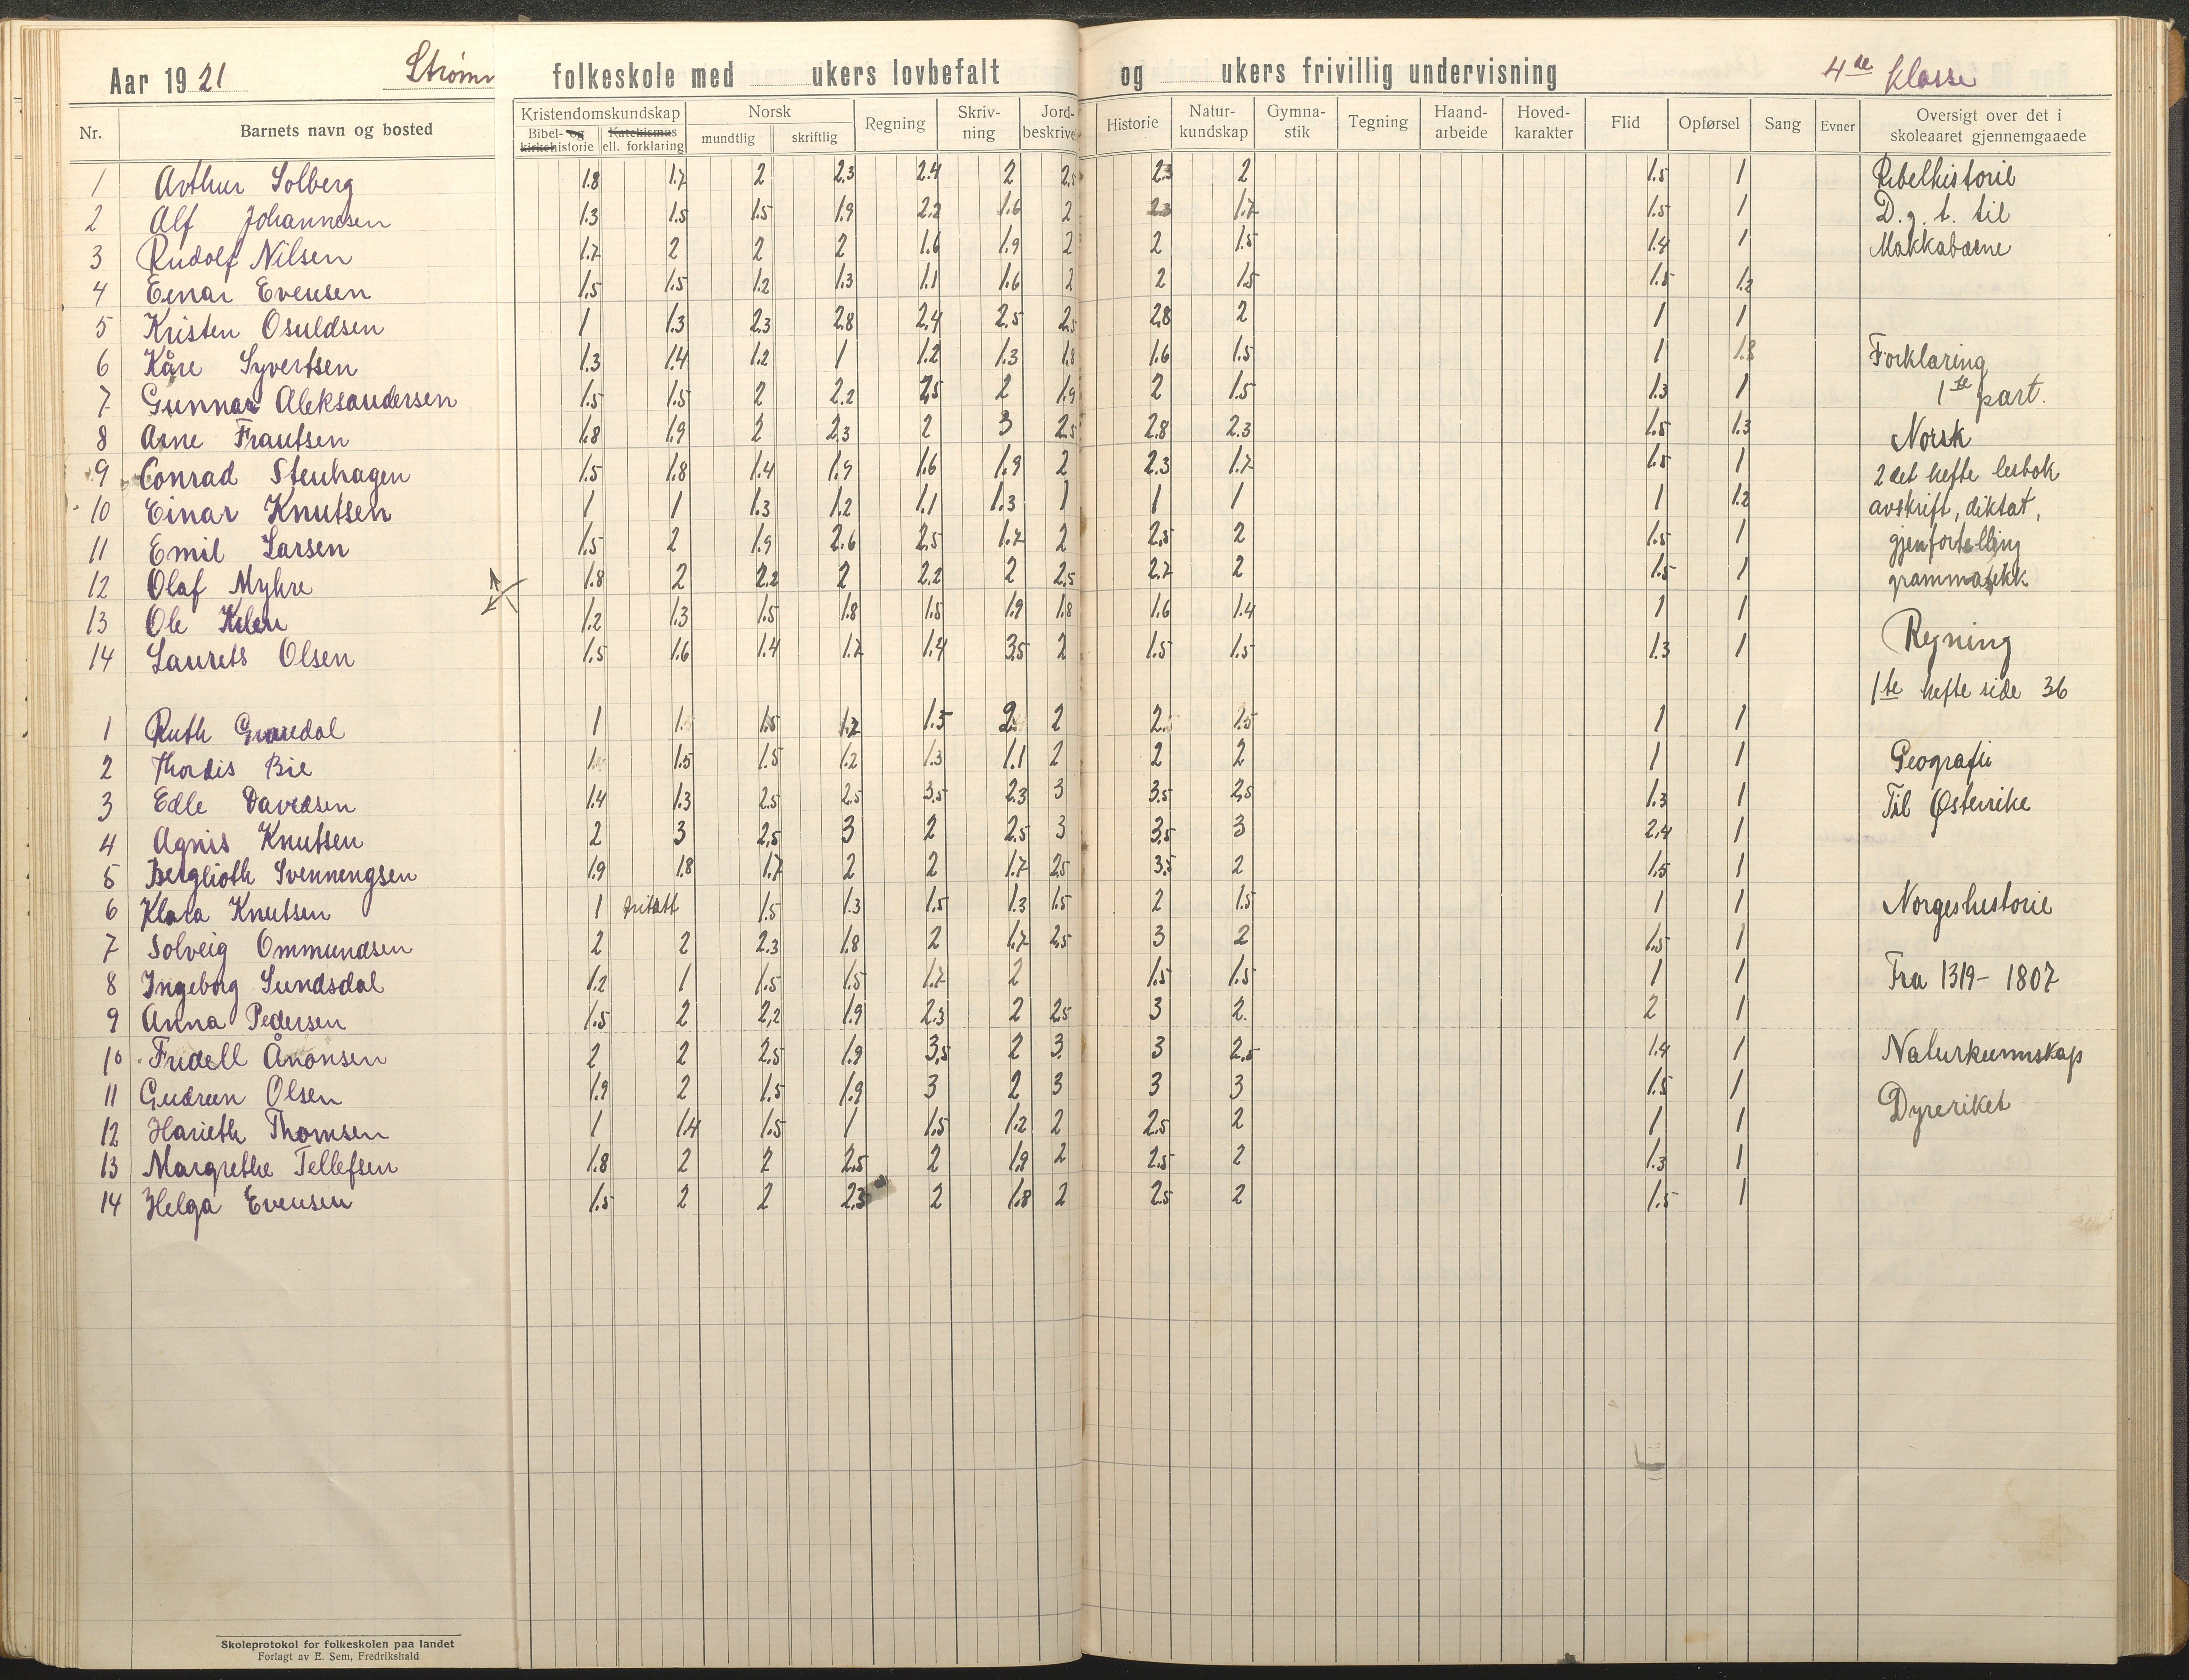 Aar 1921 folkeskole med ukers lovbefalt og ukers frivillig undervisning 4de klasse
Nr. Barnets navn og bosted Kristendomskundskap Norsk Regning Skriv-ning Jord-beskrivel Historie Natur-kundskap Gymna-stik Tegning Haand-arbeide Hoved-karakter Flid Opførsel Sang Evner Oversigt over det i skoleaaret gjennemgaaede
Bibel- og kirkehistorie Katekismus ell. forklaring mundtlig skriftlig
1 Arthur Solberg 1.8 1.7 2 2.3 2.4 2 2.5 2.3 2 1.5 1 Bibelhistorie
2 Alf Johannesen 1.3 1.5 1.5 1.9 2.2 1.6 2 2.3 1.7 1.5 1 D. g. t. til
3 Rudolf Nilsen 1.7 2 2 2 1.6 1.9 2 2 1.5 1.4 1 Makkabæerne
4 Einar Evensen 1.5 1.5 1.2 1.3 1.1 1.6 2 2 1.5 1.5 1.2
5 Kristen Osuldsen 1 1.3 2.3 2.8 2.4 2.5 2.5 2.8 2 1 1
6 Kåre Syvertsen 1.3 1.4 1.2 1 1.2 1.3 1.8 1.6 1.5 1 1.8 Forklaring
7 Gunnar Aleksandersen 1.5 1.5 2 2.2 2.5 2 1.9 2 1.5 1.3 1 1ste part.
8 Arne Frantsen 1.8 1.9 2 2.3 2 3 2.5 2.8 2.3 1.5 1.3 Norsk
9 Conrad Stenhagen 1.5 1.8 1.4 1.9 1.6 1.9 2 2.3 1.7 1.5 1 2det hefte lesbok
10 Einar Knutsen 1 1 1.3 1.2 1.1 1.3 1 1 1 1 1.2 avskrift, diktat,
11 Emil Larsen 1.5 2 1.9 2.6 2.5 1.7 2 2.5 2 1.5 1 gjenfortelling
12 Olaf Myhre 1.8 2 2.2 2 2.2 2 2.5 2.7 2 1.5 1 grammatikk
13 Ole 1.2 1.3 1.5 1.8 1.5 1.9 1.8 1.6 1.4 1 1
14 Laurets Olsen 1.5 1.6 1.4 1.7 1.4 3.5 2 1.5 1.5 1.3 1 Regning
1te hefte side 36
1 Ruth 1 1. 1.5 1.2 1.5 2 2 2. 1.5 1 1
2 Thordis Bie 1 1.5 1.5 1.2 1.3 1.1 2 2 2 1 1 Geografi
3 Edle Davidsen 1.4 1.3 2.5 2.5 3.5 2.3 3 3.5 2.5 1.3 1 Til Østerrike
4 Agnis Knutsen 2 3 2.5 3 2 2.5 3 3.5 3 2.4 1
5 Berglioth Svenningsen 1.9 1.8 1.7 2 2 1.7 2.5 3.5 2 1.5 1
6 Klara Knutsen 1 fritatt 1.5 1.3 1.5 1.3 1.5 2 1.5 1 1 Norgeshistorie
7 Solveig Ommundsen 2 2 2.3 1.8 2 1.7 2.5 3 2 1.5 1
8 Ingeborg Sundsdal 1.2 1 1.5 1.5 1.7 2 1.5 1.5 1 1 Fra 1319- 1807
9 Anna Pedersen 1.5 2 2.2 1.9 2.3 2 2.5 3 2. 2 1
10 Fridell Ånonsen 2 2 2.5 1.9 3.5 2 3. 3 2.5 1.4 1 Naturkunnskap
11 Gudrun Olsen 1.9 2 1.5 1.9 3 2 3 3 3 1.5 1 Dyreriket
12 Harieth Thomsen 1 1.4 1.5 1 1.5 1.2 2 2.5 2 1 1
13 Margrethe Tellefsen 1.8 2 2 2.5 2 1.9 2 2.5 2 1.3 1
14 Helga Evensen 1.5 2 2 2.3 2 1.8 2 2.5 2 1.5 1
Skoleprotokol for folkeskolen paa landet
Forlagt av E. Sem, Fredrikshald